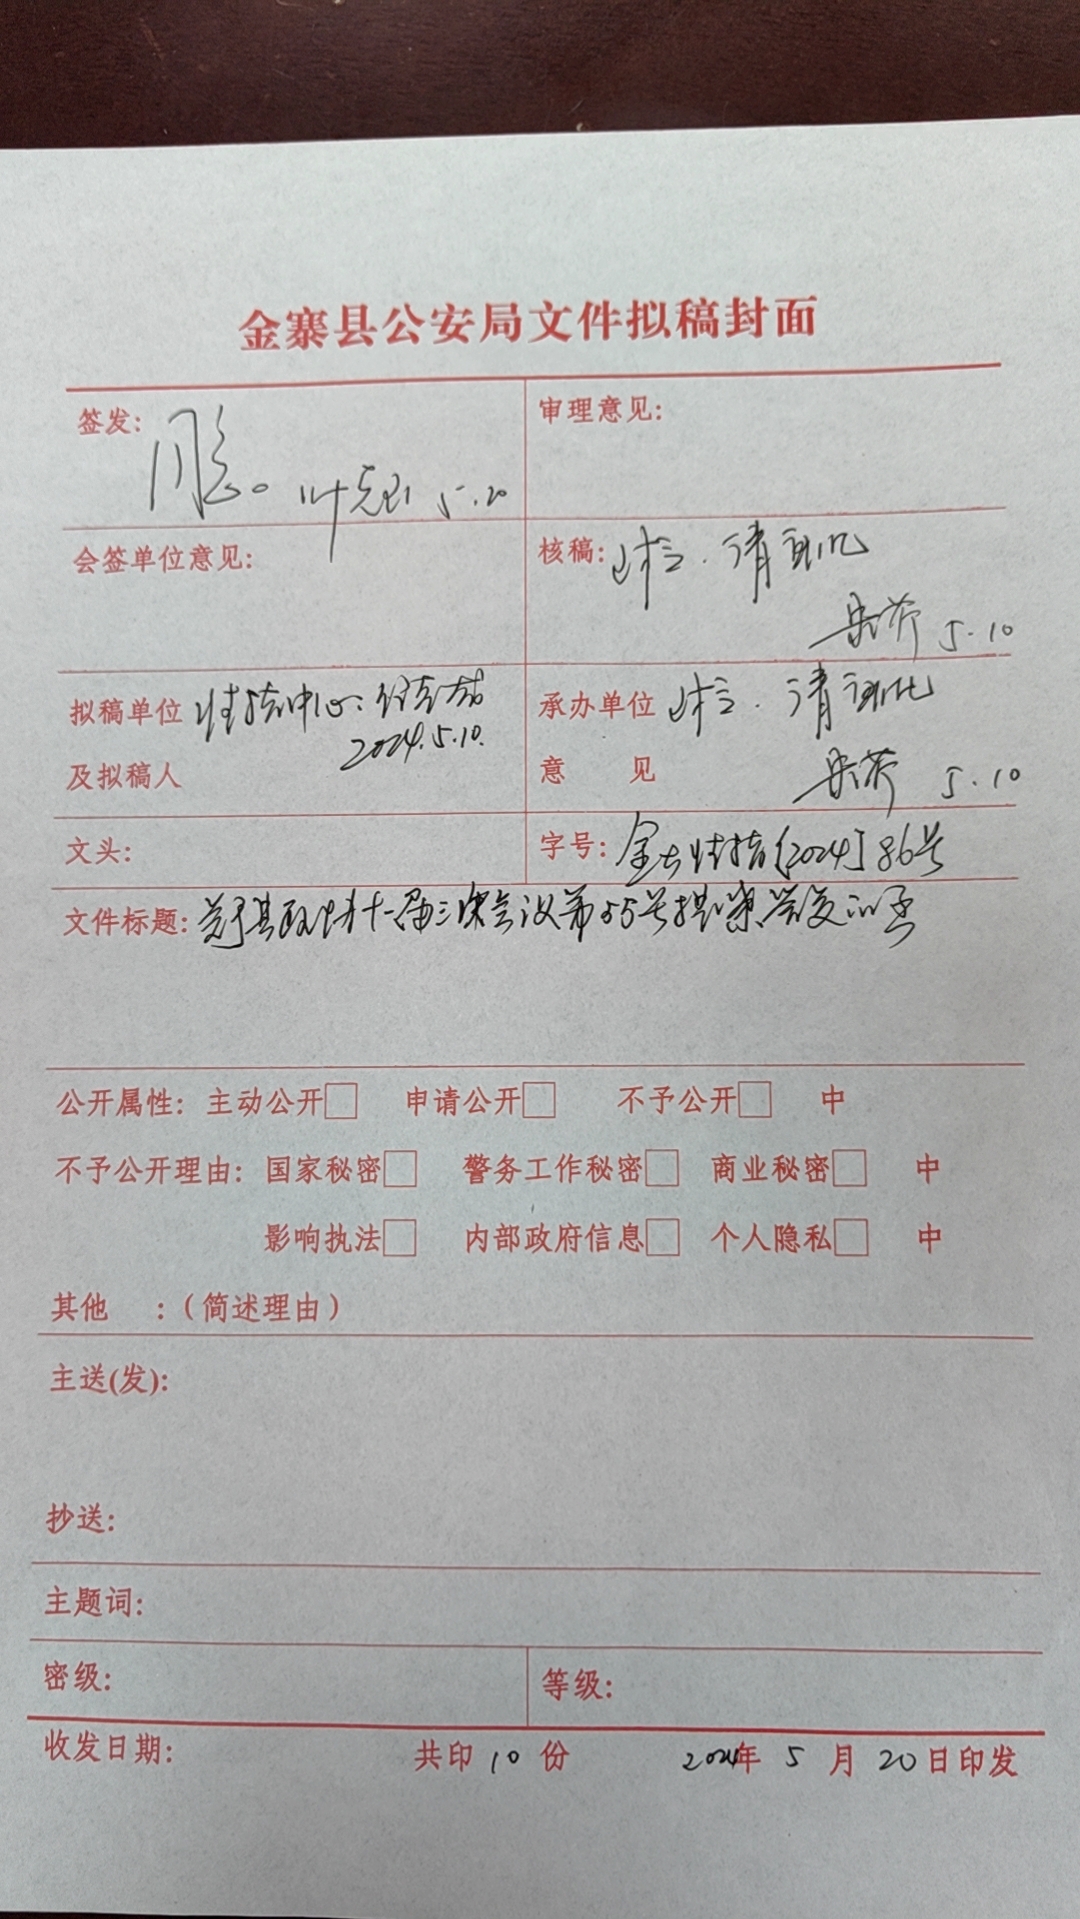 金寨县公安局文件拟稿封面
签发: 同意。 5.20
审理意见:
会签单位意见:
核稿: 已核, 请审阅
5.10
拟稿单位 情指中心:
及拟稿人 2024.5.10.
承办单位 已核. 请审阅
意 见 5.10
文头:
字号: 金公情指[2024]86号
文件标题: 关于县政协十一届三次会议第55号提案答复的函
公开属性: 主动公开□ 申请公开□ 不予公开□ 中
不予公开理由: 国家秘密□ 警务工作秘密□ 商业秘密□ 中
影响执法□ 内部政府信息□ 个人隐私□ 中
其他 :(简述理由)
主送(发):
抄送:
主题词:
密级:
等级:
收发日期: 共印 10 份 2024年 5 月 20 日印发